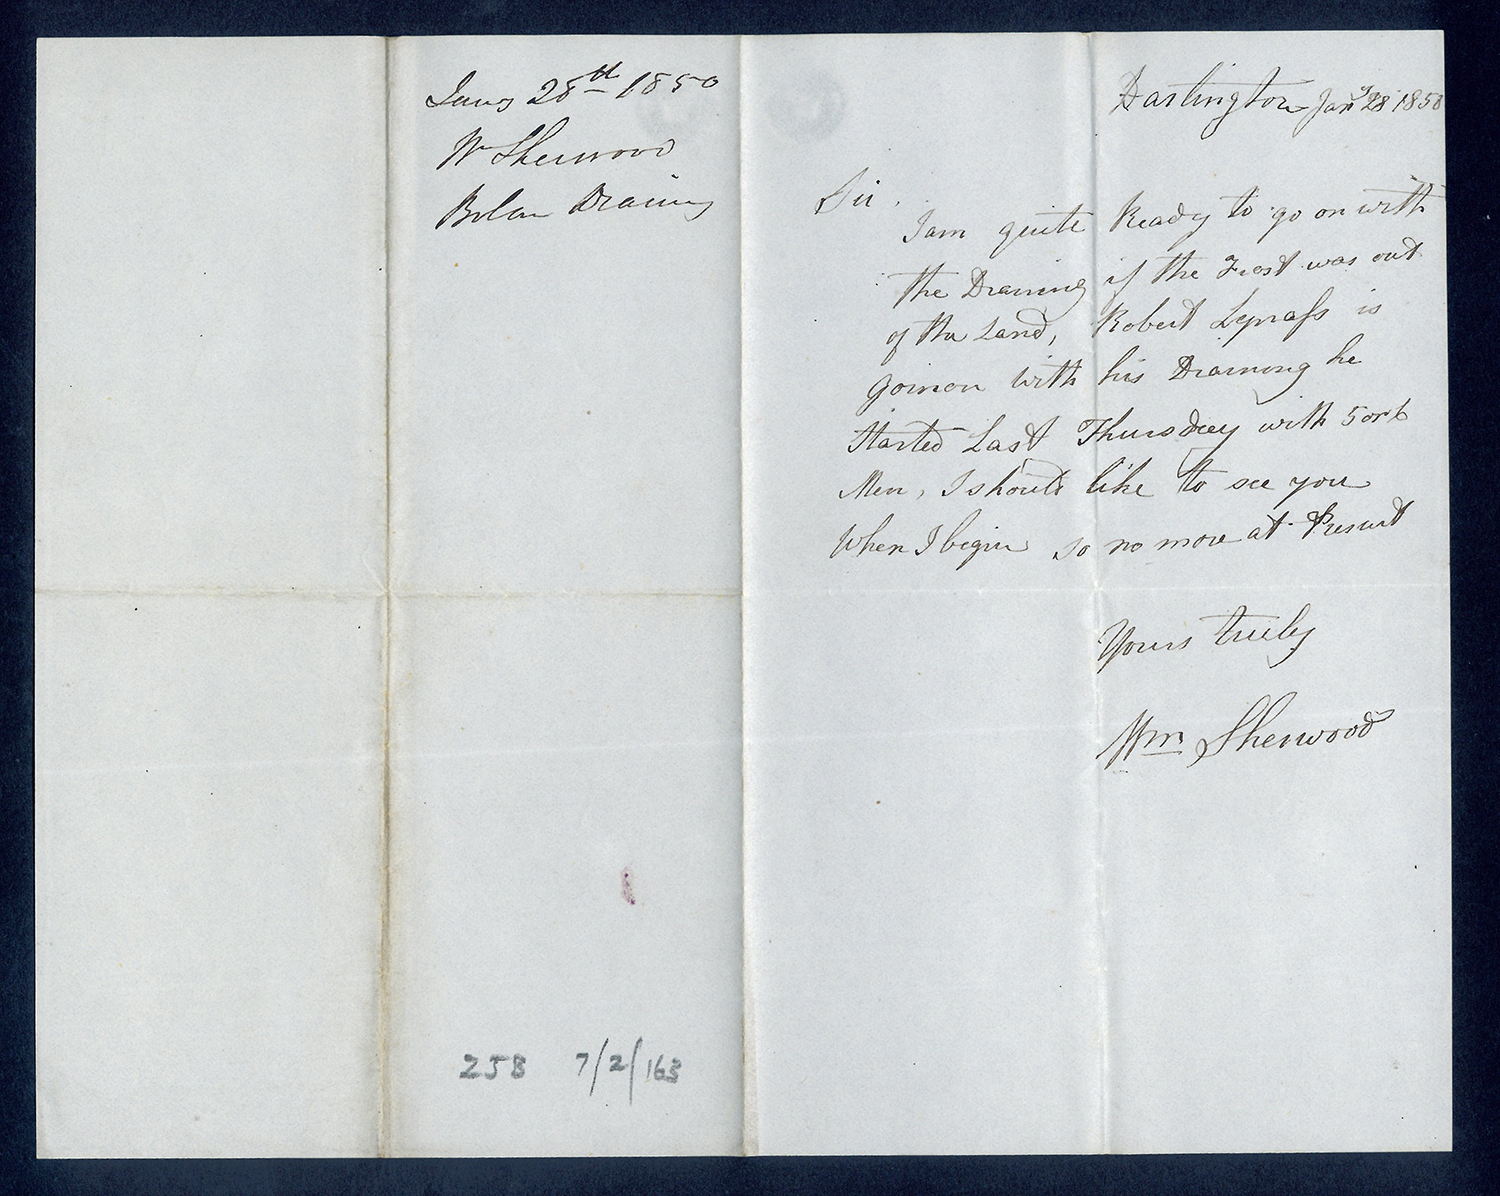 Jany 28th 1850
Wm Sherwood
Bolam Draining
258 7/2/163
Darlington Jany 28 1850
Sir,
I am quite Ready to go on with
the Draining if the Frost was out
of the Land, Robert Lynass is
goinon with his Draining he
Started Last Thursday with 5 or 6
Men, I should like to see you
When I begin so no more at Present
Yours truly
Wm Sherwood